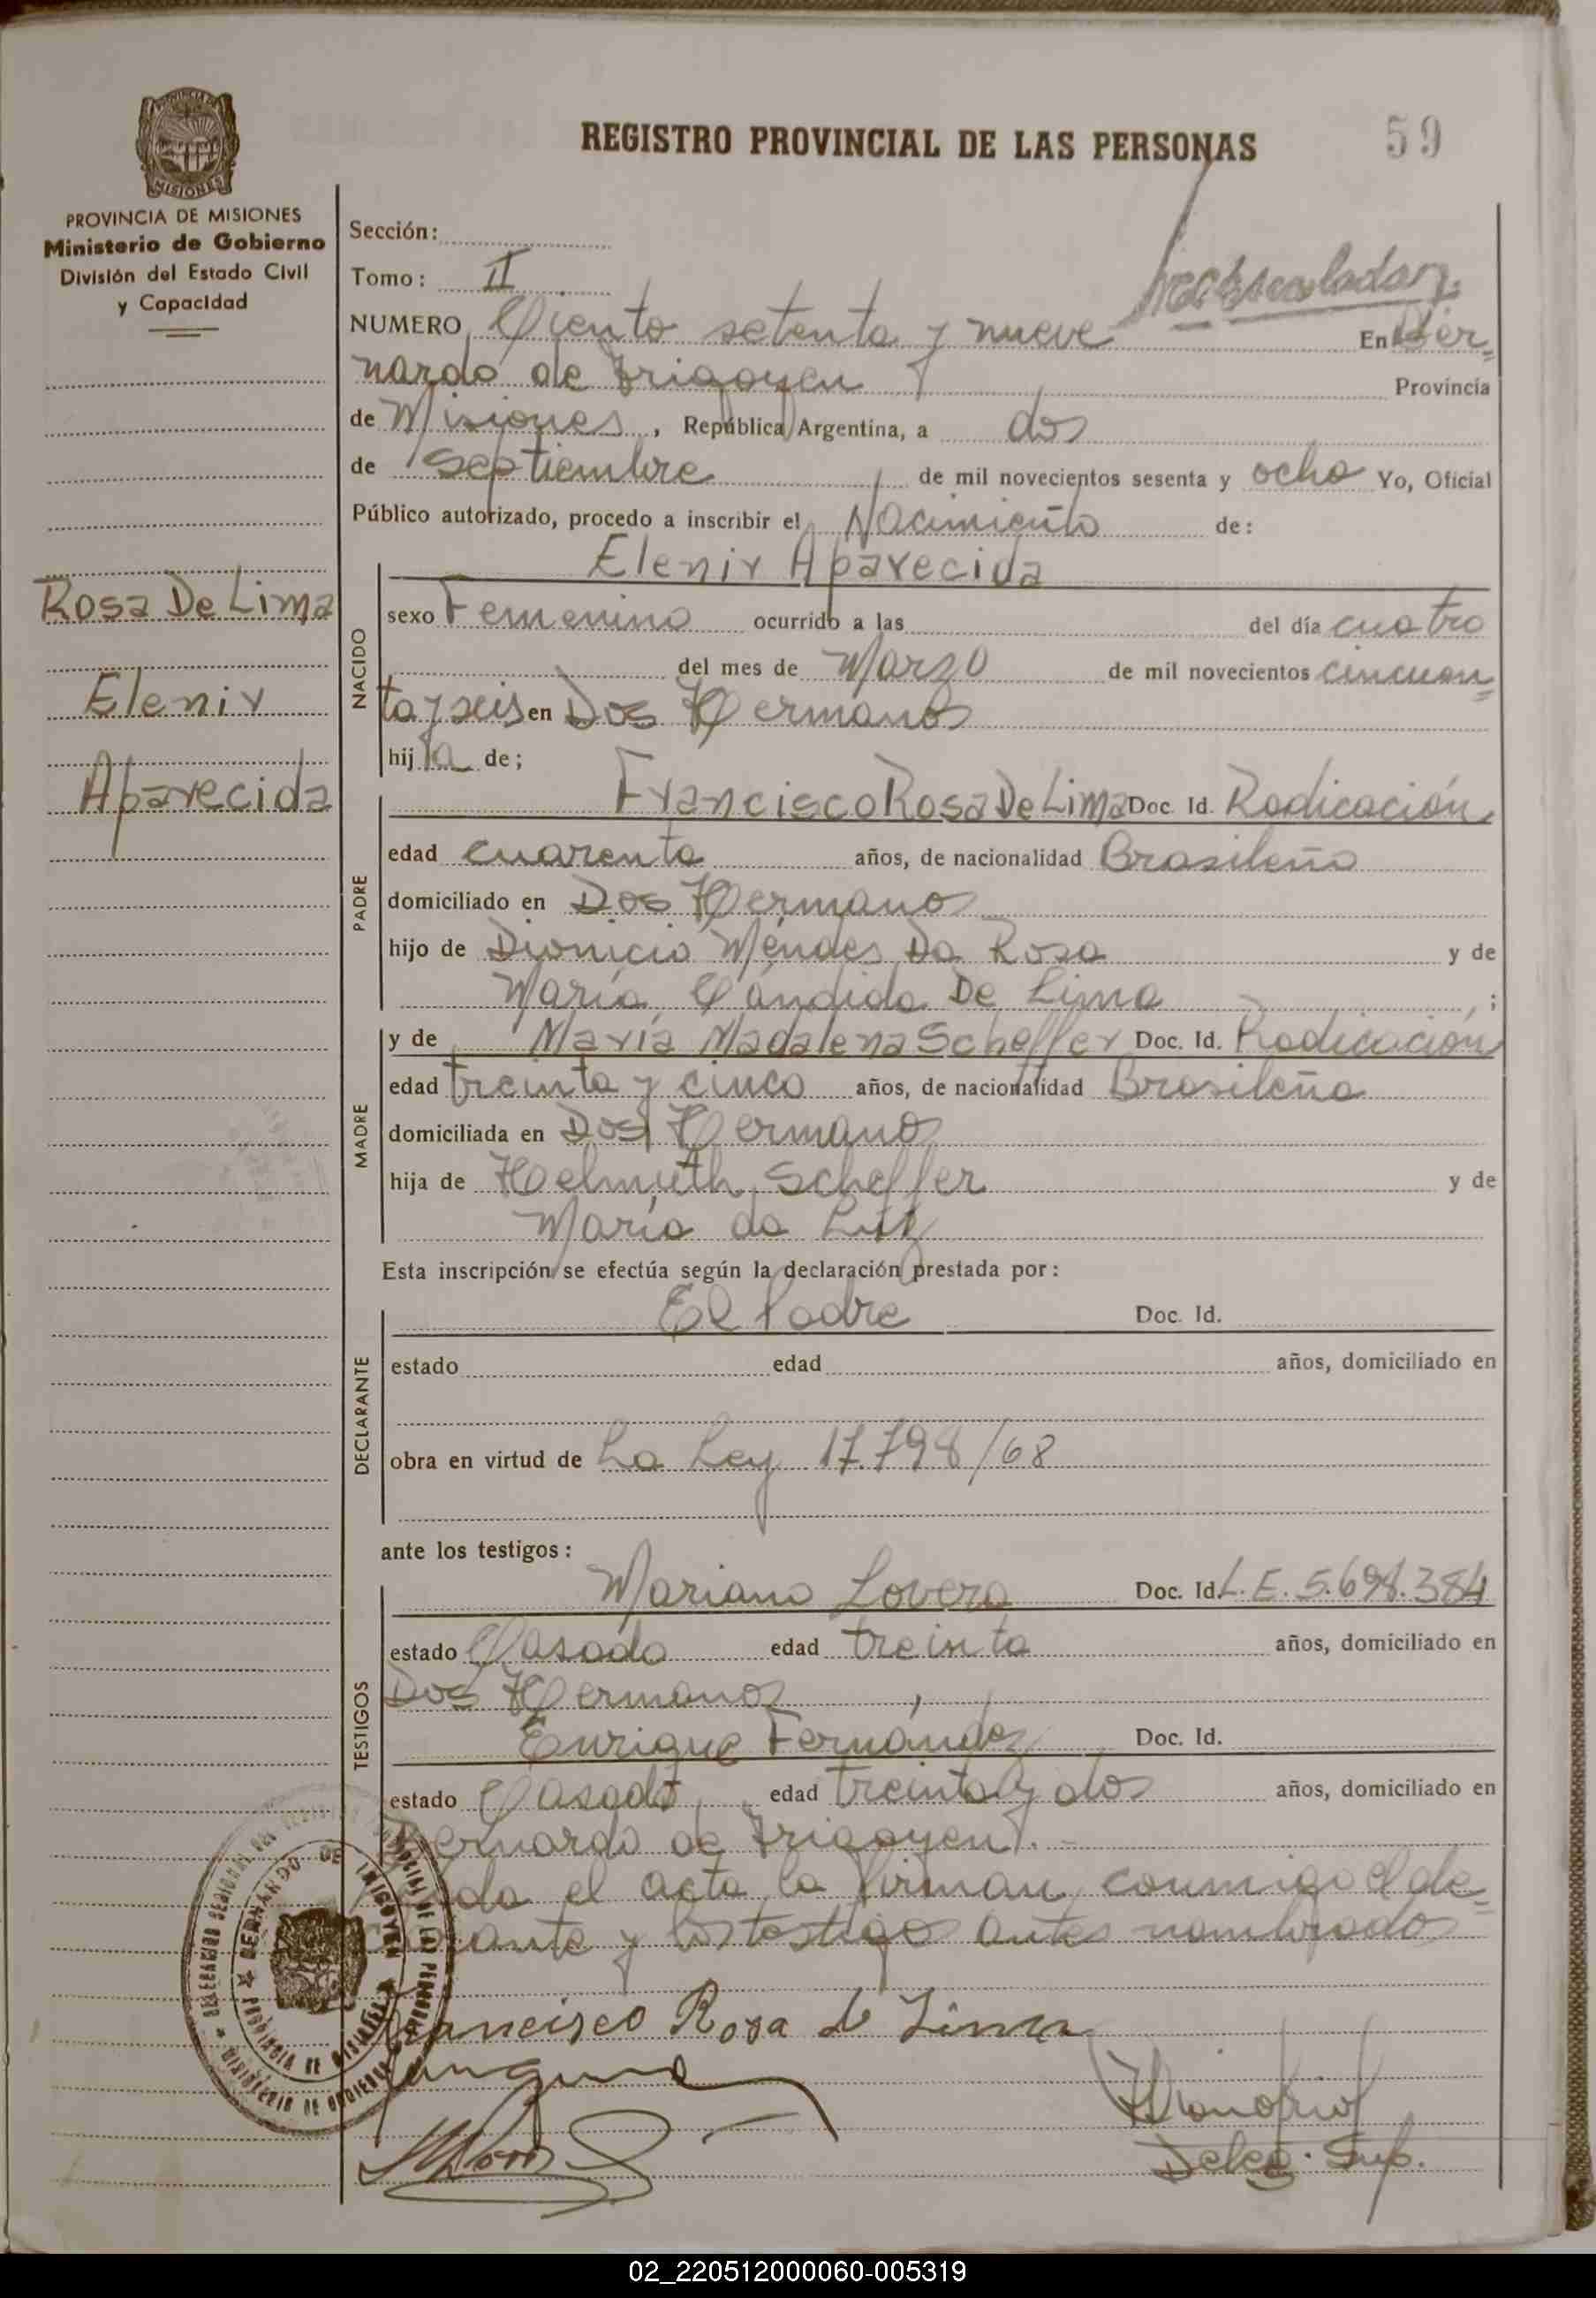 REGISTRO PROVINCIAL DE LAS PERSONAS
59
MISIONES
PROVINCIA DE MISIONES
Ministerio de Gobierno
División del Estado Civil
y Capacidad
Rosa De Lima
Elenir
Aparecida
Sección:
Tomo: II
NUMERO Ciento setenta y nueve En Ber=
nardo de Irigoyen Provincia
de Misiones, República Argentina, a dos
de Septiembre de mil novecientos sesenta y ocho Yo, Oficial
Público autorizado, procedo a inscribir el Nacimiento de:
Elenir Aparecida
NACIDO
sexo Femenino ocurrido a las del día cuatro
del mes de Marzo de mil novecientos cincuen=
ta y seis en Dos Hermanos
hija de;
PADRE
Francisco Rosa De Lima Doc. Id. Radicación
edad cuarenta años, de nacionalidad Brasileña
domiciliado en Dos Hermanos
hijo de Dionicio Méndes Da Rosa y de
María Cándida De Lima ;
MADRE
y de María Madalena Scheffer Doc. Id. Radicación
edad treinta y cinco años, de nacionalidad Brasileña
domiciliada en Dos Hermanos
hija de Helmuth Scheffer y de
María da Luz
Esta inscripción se efectúa según la declaración prestada por:
DECLARANTE
El Padre Doc. Id.
estado edad años, domiciliado en
obra en virtud de La Ley 17.798/68
ante los testigos:
TESTIGOS
Mariano Lovera Doc. Id. L.E. 5.694.384
estado Casado edad treinta años, domiciliado en
Dos Hermanos,
Enrique Fernández Doc. Id.
estado Casado edad treinta y dos años, domiciliado en
Bernardo de Irigoyen.-
el acta la firman conmigo el de=
y los testigos antes nombrados
Francisco Rosa de Lima
Deleg. Sup.
BERNARDO DE IRIGOYEN
PROVINCIA DE MISIONES
MINISTERIO DE GOBIERNO
02_220512000060-005319